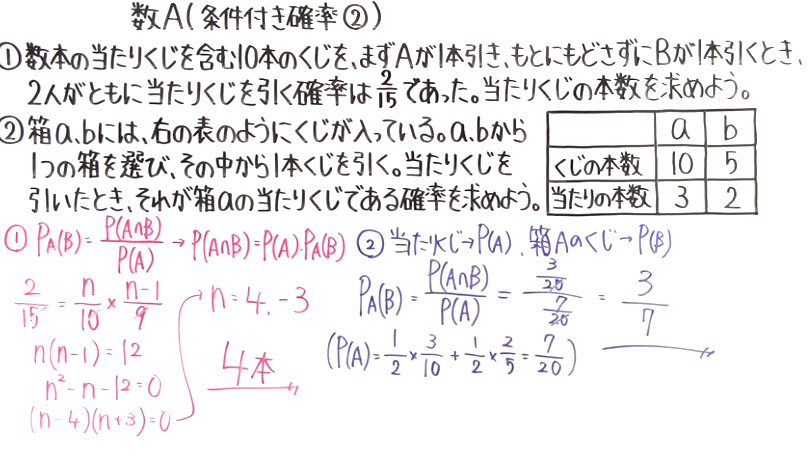 数A(条件付き確率②)
①数本の当たりくじを含む10本のくじを、まずAが1本引き、もとにもどさずにBが1本引くとき、
2人がともに当たりくじを引く確率は2/15であった。当たりくじの本数を求めよう。
②箱a、bには、右の表のようにくじが入っている。a、bから
1つの箱を選び、その中から1本くじを引く。当たりくじを
引いたとき、それが箱aの当たりくじである確率を求めよう。
a b
くじの本数 10 5
当たりの本数 3 2
① P_A(B)=P(A∩B)/P(A) → P(A∩B)=P(A)・P_A(B)
2/15=n/10×(n-1)/9
n(n-1)=12
n²-n-12=0
(n-4)(n+3)=0
n=4、-3
4本
② 当たりくじ→P(A)、箱Aのくじ→P(B)
P_A(B)=P(A∩B)/P(A)=(3/20)/(7/20)=3/7
(P(A)=1/2×3/10+1/2×2/5=7/20)